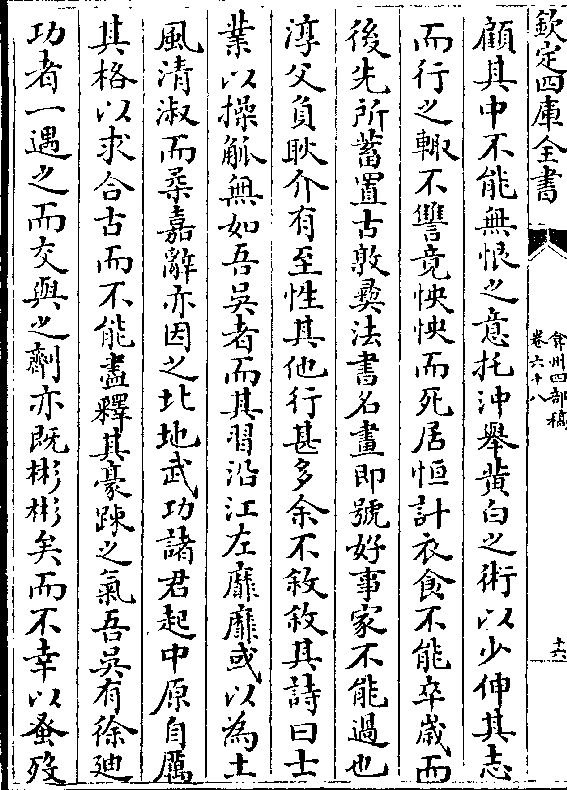 欽定四庫全書
弇州四部稿
卷六十八
十六
顧其中不能無恨之意托沖舉黄白之術以少伸其志
而行之輙不讐竟怏怏而死居恒計衣食不能卒歳而
後先所蓄置古敦彛法書名畫即號好事家不能過也
淳父負耿介有至性其他行甚多余不敘敘其詩曰士
業以操觚無如吾吳者而其習沿江左靡靡或以為土
風清淑而柔嘉辭亦因之北地武功諸君起中原自厲
其格以求合古而不能盡釋其豪踈之氣吾吳有徐廸
功者一遇之而交與之劑亦既彬彬矣而不幸以蚤歿